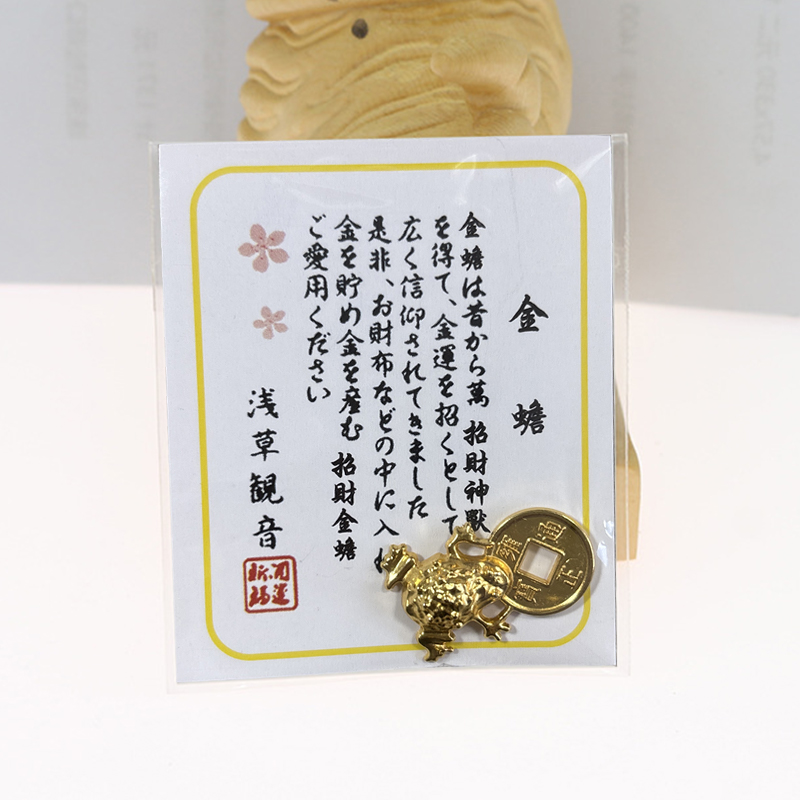 金蟾
金蟾は昔から萬 招財神獸
を得て、金運を招くとして
広く信仰されてきました
是非、お財布などの中に入れ
金を貯め金を産む 招財金蟾
ご愛用ください
浅草観音
開運
祈福